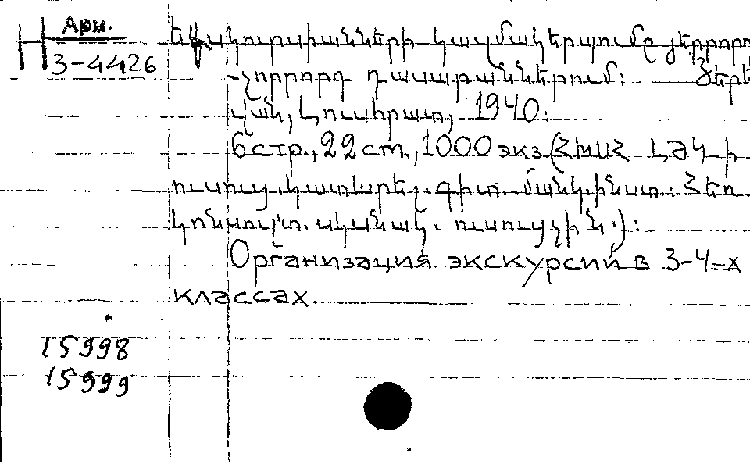 Н Арм.
3-4426
Էքսկուրսիաների կազմակերպումը յերրորդ
-չորրորդ դասարաններում։ Յերե
վան, Լուսհրատ, 1940.
6стр., 22ст, 1000экз. (ՀԽՍՀ ԼԺԿ-ի
ուսուց. կատարել. գիտ. մանկ. ինստ. Հեռ
կոնսուլտ. ականակ. ուսուցչին.)։
Организация экскурсий в 3-4-х
классах.
15998
15999